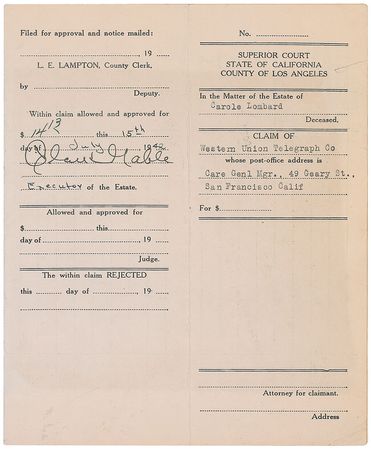 Filed for approval and notice mailed:
19
L. E. LAMPTON, County Clerk,
by
Deputy.
Within claim allowed and approved for
$ this 15th
day of July 1942
Clark Gable
Executor of the Estate.
Allowed and approved for
$ this
day of , 19
Judge.
The within claim REJECTED
this day of , 19
No.
SUPERIOR COURT
STATE OF CALIFORNIA
COUNTY OF LOS ANGELES
In the Matter of the Estate of
Carole Lombard
Deceased,
CLAIM OF
Western Union Telegraph Co
whose post-office address is
Care Genl Mgr., 49 Geary St.,
San Francisco Calif
For $
Attorney for claimant.
Address